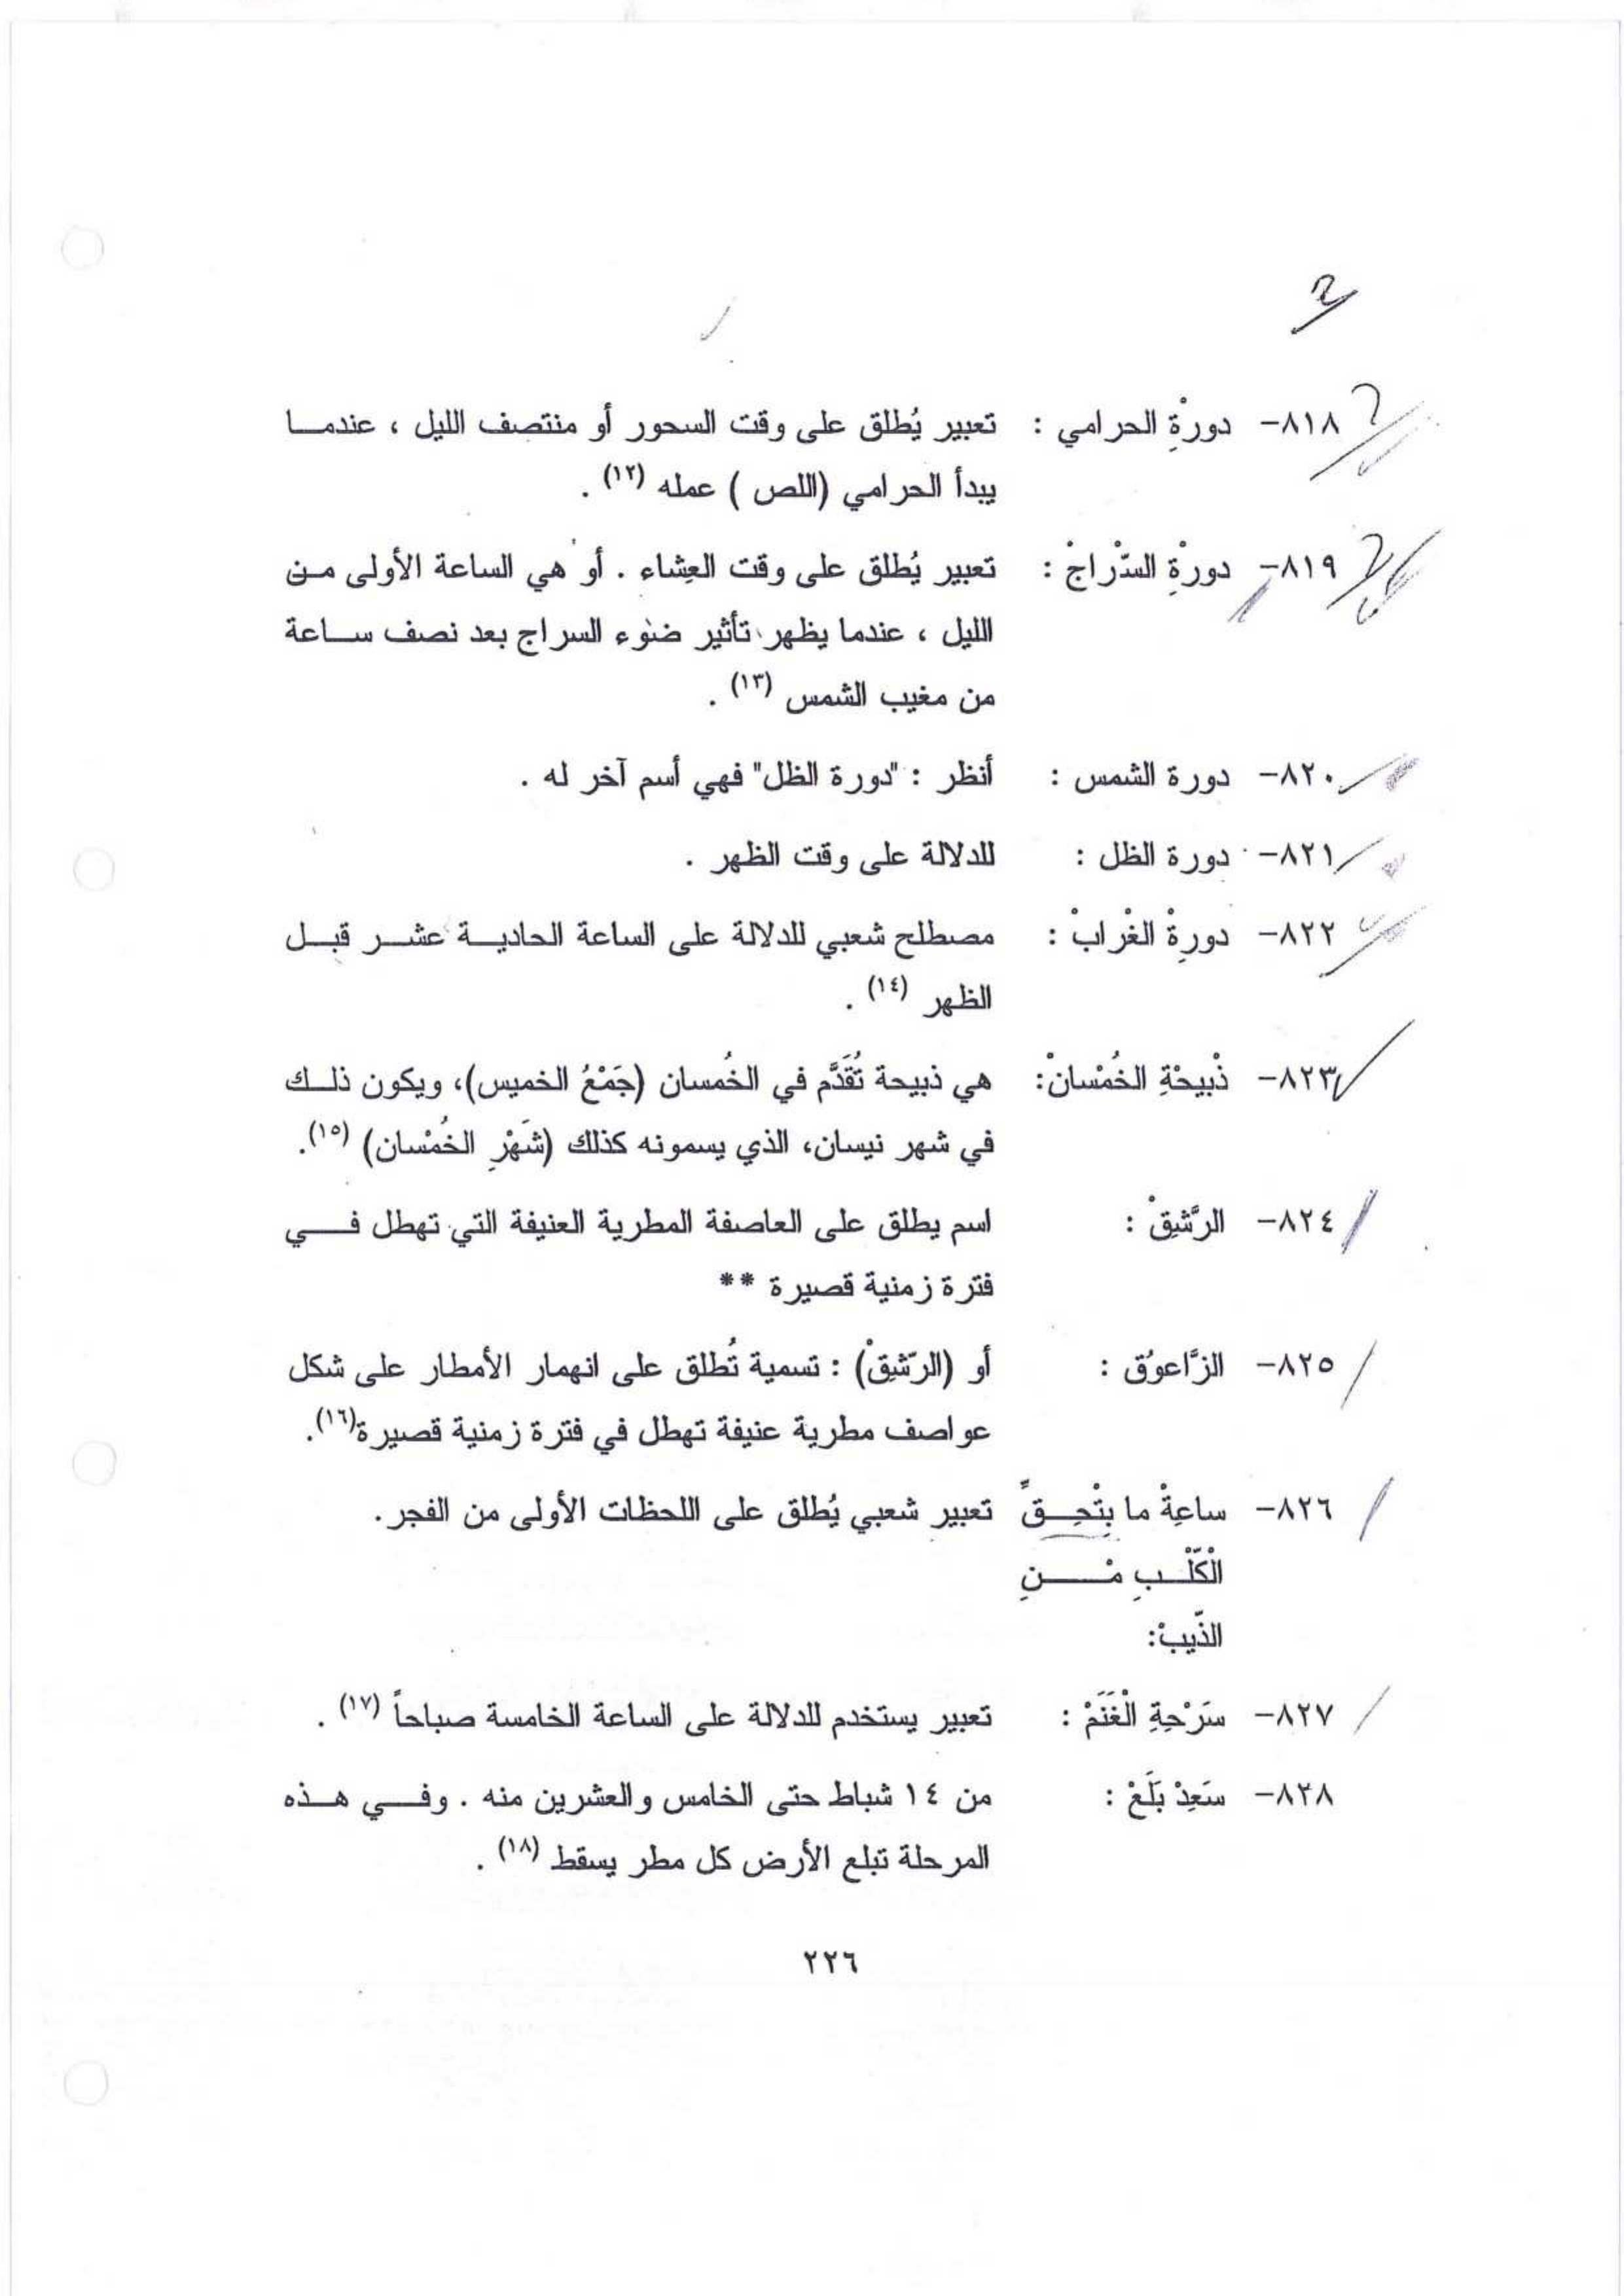 ٨١٨- دورْةِ الحرامي : تعبير يُطلق على وقت السحور أو منتصف الليل ، عندمـا
يبدأ الحرامي (اللص ) عمله (١٢) .
٨١٩- دورْةِ السّْراجْ : تعبير يُطلق على وقت العِشاء . أو هي الساعة الأولى مـن
الليل ، عندما يظهر تأثير ضوء السراج بعد نصف ســاعة
من مغيب الشمس (١٣) .
٨٢٠- دورة الشمس : أنظر : "دورة الظل" فهي أسم آخر له .
٨٢١- دورة الظل : للدلالة على وقت الظهر .
٨٢٢- دورِةْ الغْرابْ : مصطلح شعبي للدلالة على الساعة الحاديـة عشـر قبـل
الظهر (١٤) .
٨٢٣- ذْبيحْةِ الخُمْسانْ: هي ذبيحة تُقَدَّم في الخُمسان (جَمْعُ الخميس)، ويكون ذلـك
في شهر نيسان، الذي يسمونه كذلك (شَهْرِ الخُمْسان) (١٥).
٨٢٤- الرَّشِقْ : اسم يطلق على العاصفة المطرية العنيفة التي تهطل فــي
فترة زمنية قصيرة **
٨٢٥- الزَّاعوُق : أو (الرّشِقْ) : تسمية تُطلق على انهمار الأمطار على شكل
عواصف مطرية عنيفة تهطل في فترة زمنية قصيرة(١٦).
٨٢٦- ساعِةْ ما بِتْحِـقّ تعبير شعبي يُطلق على اللحظات الأولى من الفجر.
الْكَلْـبِ مْـــنِ
الذّيبْ:
٨٢٧- سَرْحِةِ الْغَنَمْ : تعبير يستخدم للدلالة على الساعة الخامسة صباحاً (١٧) .
٨٢٨- سَعِدْ بَلَعْ : من ١٤ شباط حتى الخامس والعشرين منه . وفـي هـذه
المرحلة تبلع الأرض كل مطر يسقط (١٨) .
٢٢٦